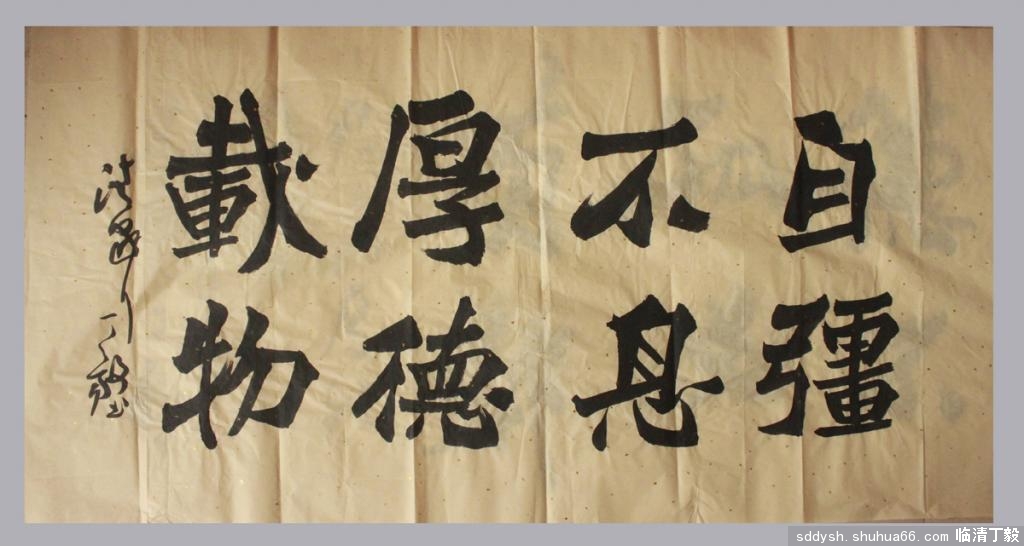 自彊
不息
厚德
載物
丁毅
sddysh.shuhua66.com 临清丁毅